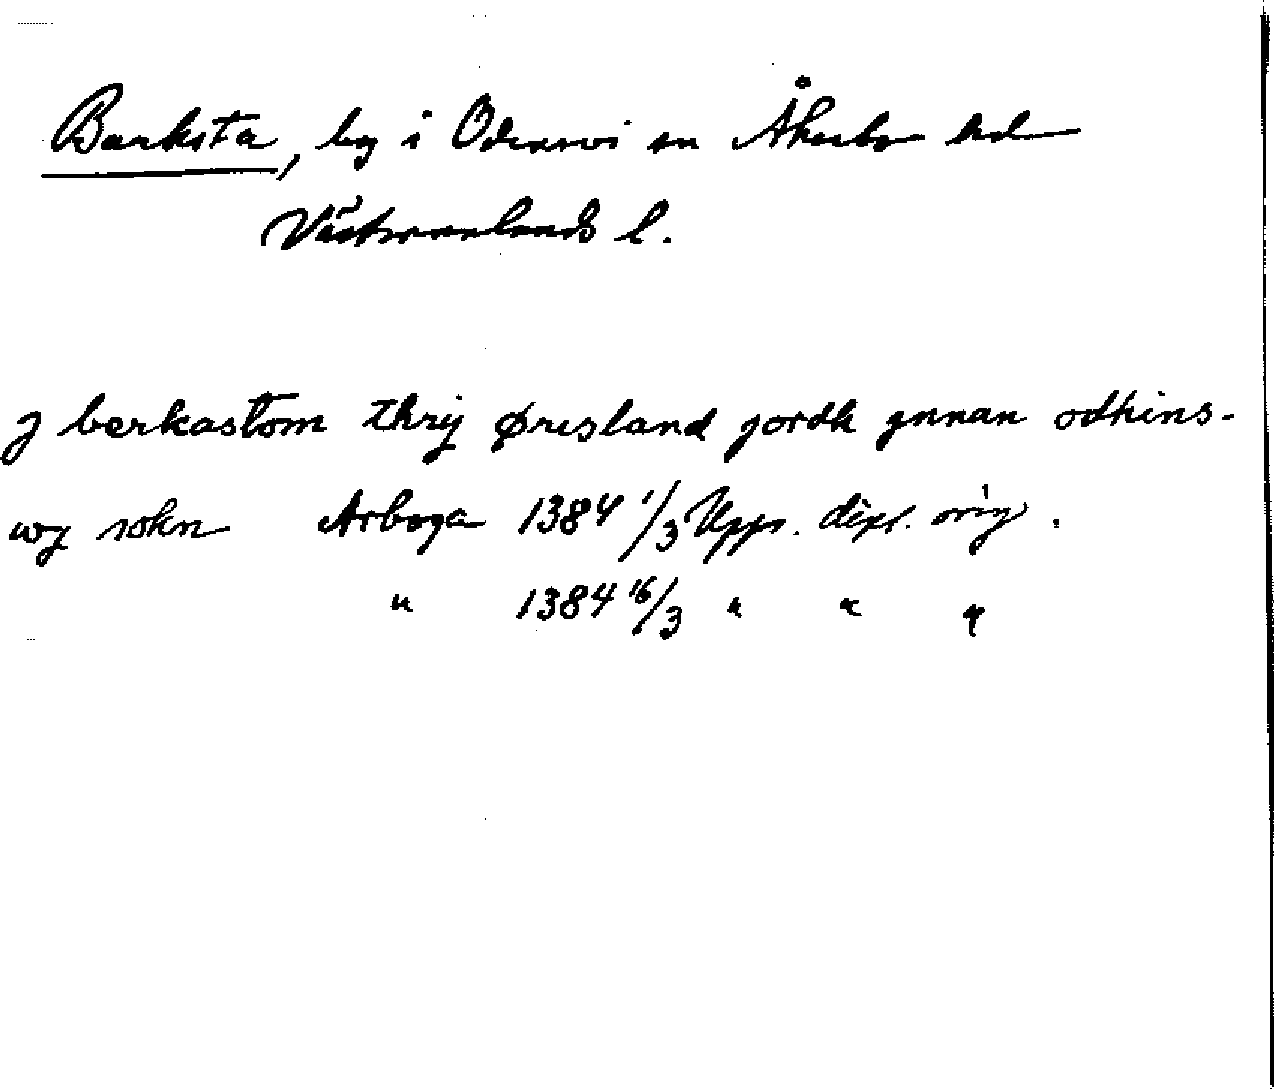 Barksta, by i Odensvi sn Åkerbo hd
Västmanlands l.
J berkastom thrij øresland jordh ynnan odhins-
wy sokn Arboga 1384 1/3 Upps. dipl. orig.
" 1384 16/3 " " "